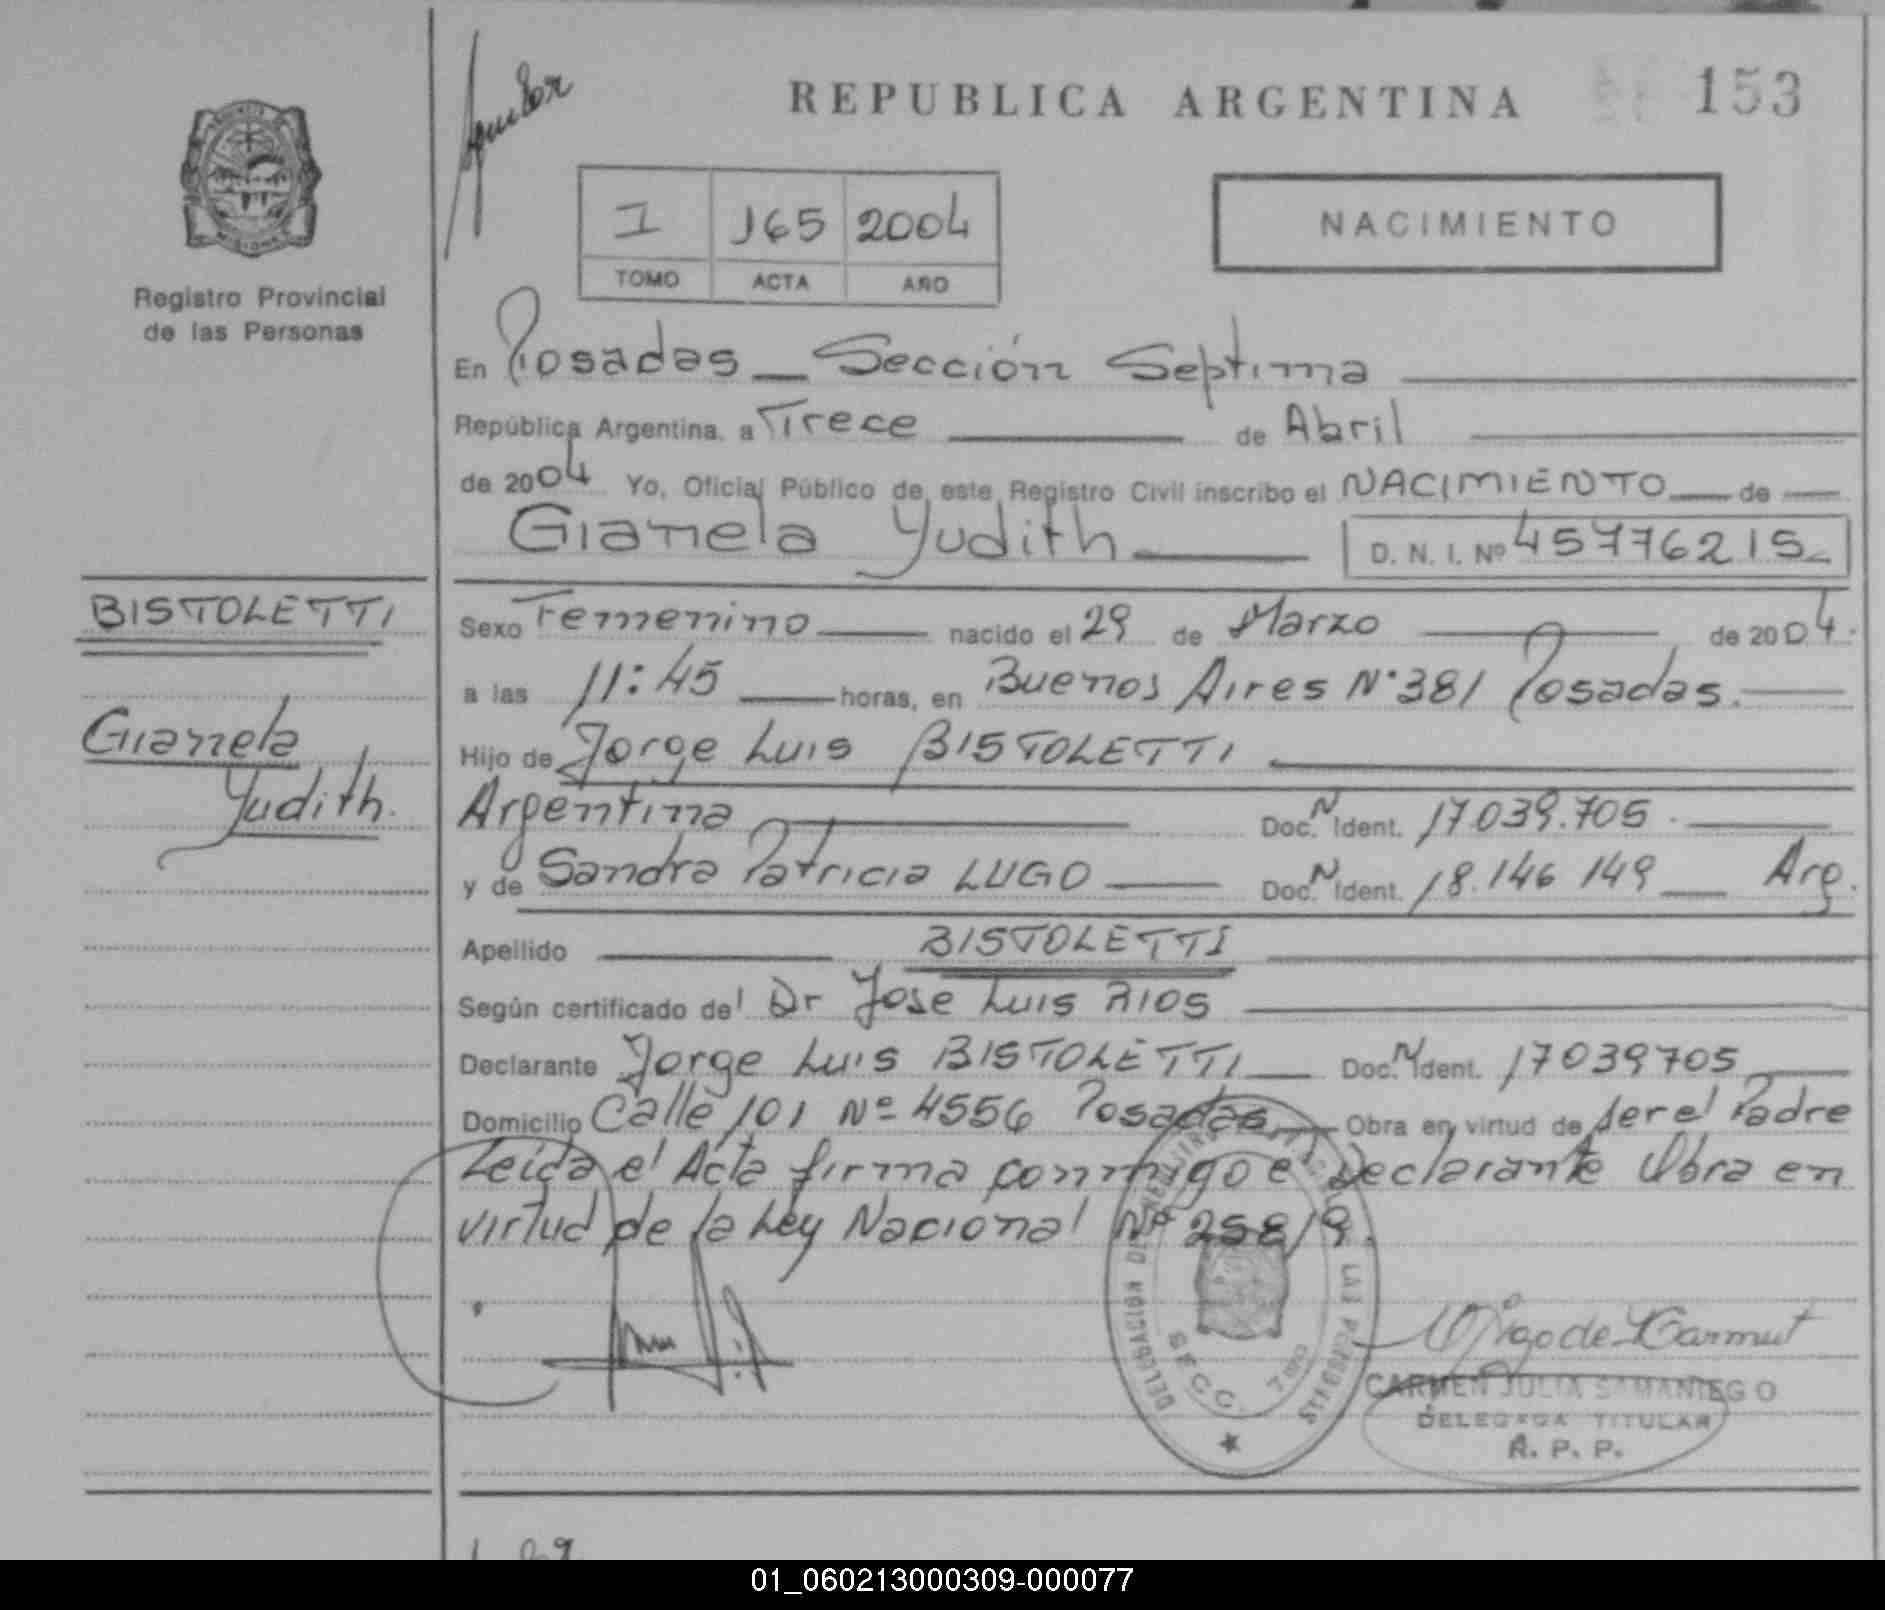 REPUBLICA ARGENTINA 153
I 165 2004
TOMO ACTA AÑO
NACIMIENTO
Registro Provincial
de las Personas
En Posadas Sección Septima
República Argentina, a Trece de Abril
de 2004 Yo, Oficial Público de este Registro Civil inscribo el NACIMIENTO de
Gianela Yudith D. N. I. Nº 45776215
BISTOLETTI
Gianela
Yudith.
Sexo Femenino nacido el 29 de Marzo de 2004.
a las 11:45 horas, en Buenos Aires Nº 381 Posadas.
Hijo de Jorge Luis BISTOLETTI
Argentina Doc. N Ident. 17.039.705
y de Sandra Patricia LUGO Doc. N Ident. 18.146 149 Arg.
Apellido BISTOLETTI
Según certificado del Dr Jose Luis RIOS
Declarante Jorge Luis BISTOLETTI Doc. N Ident. 17039705
Domicilio Calle 101 Nº 4556 Posadas Obra en virtud de ser el Padre
Leida el Acta firma conmigo el Declarante Obra en
virtud de la Ley Nacional Nº 25819.
DELEGACION DE LAS PERSONAS
SECC. 7
CARMEN JULIA SAMANIEGO
DELEGADA TITULAR
R. P. P.
01_060213000309-000077